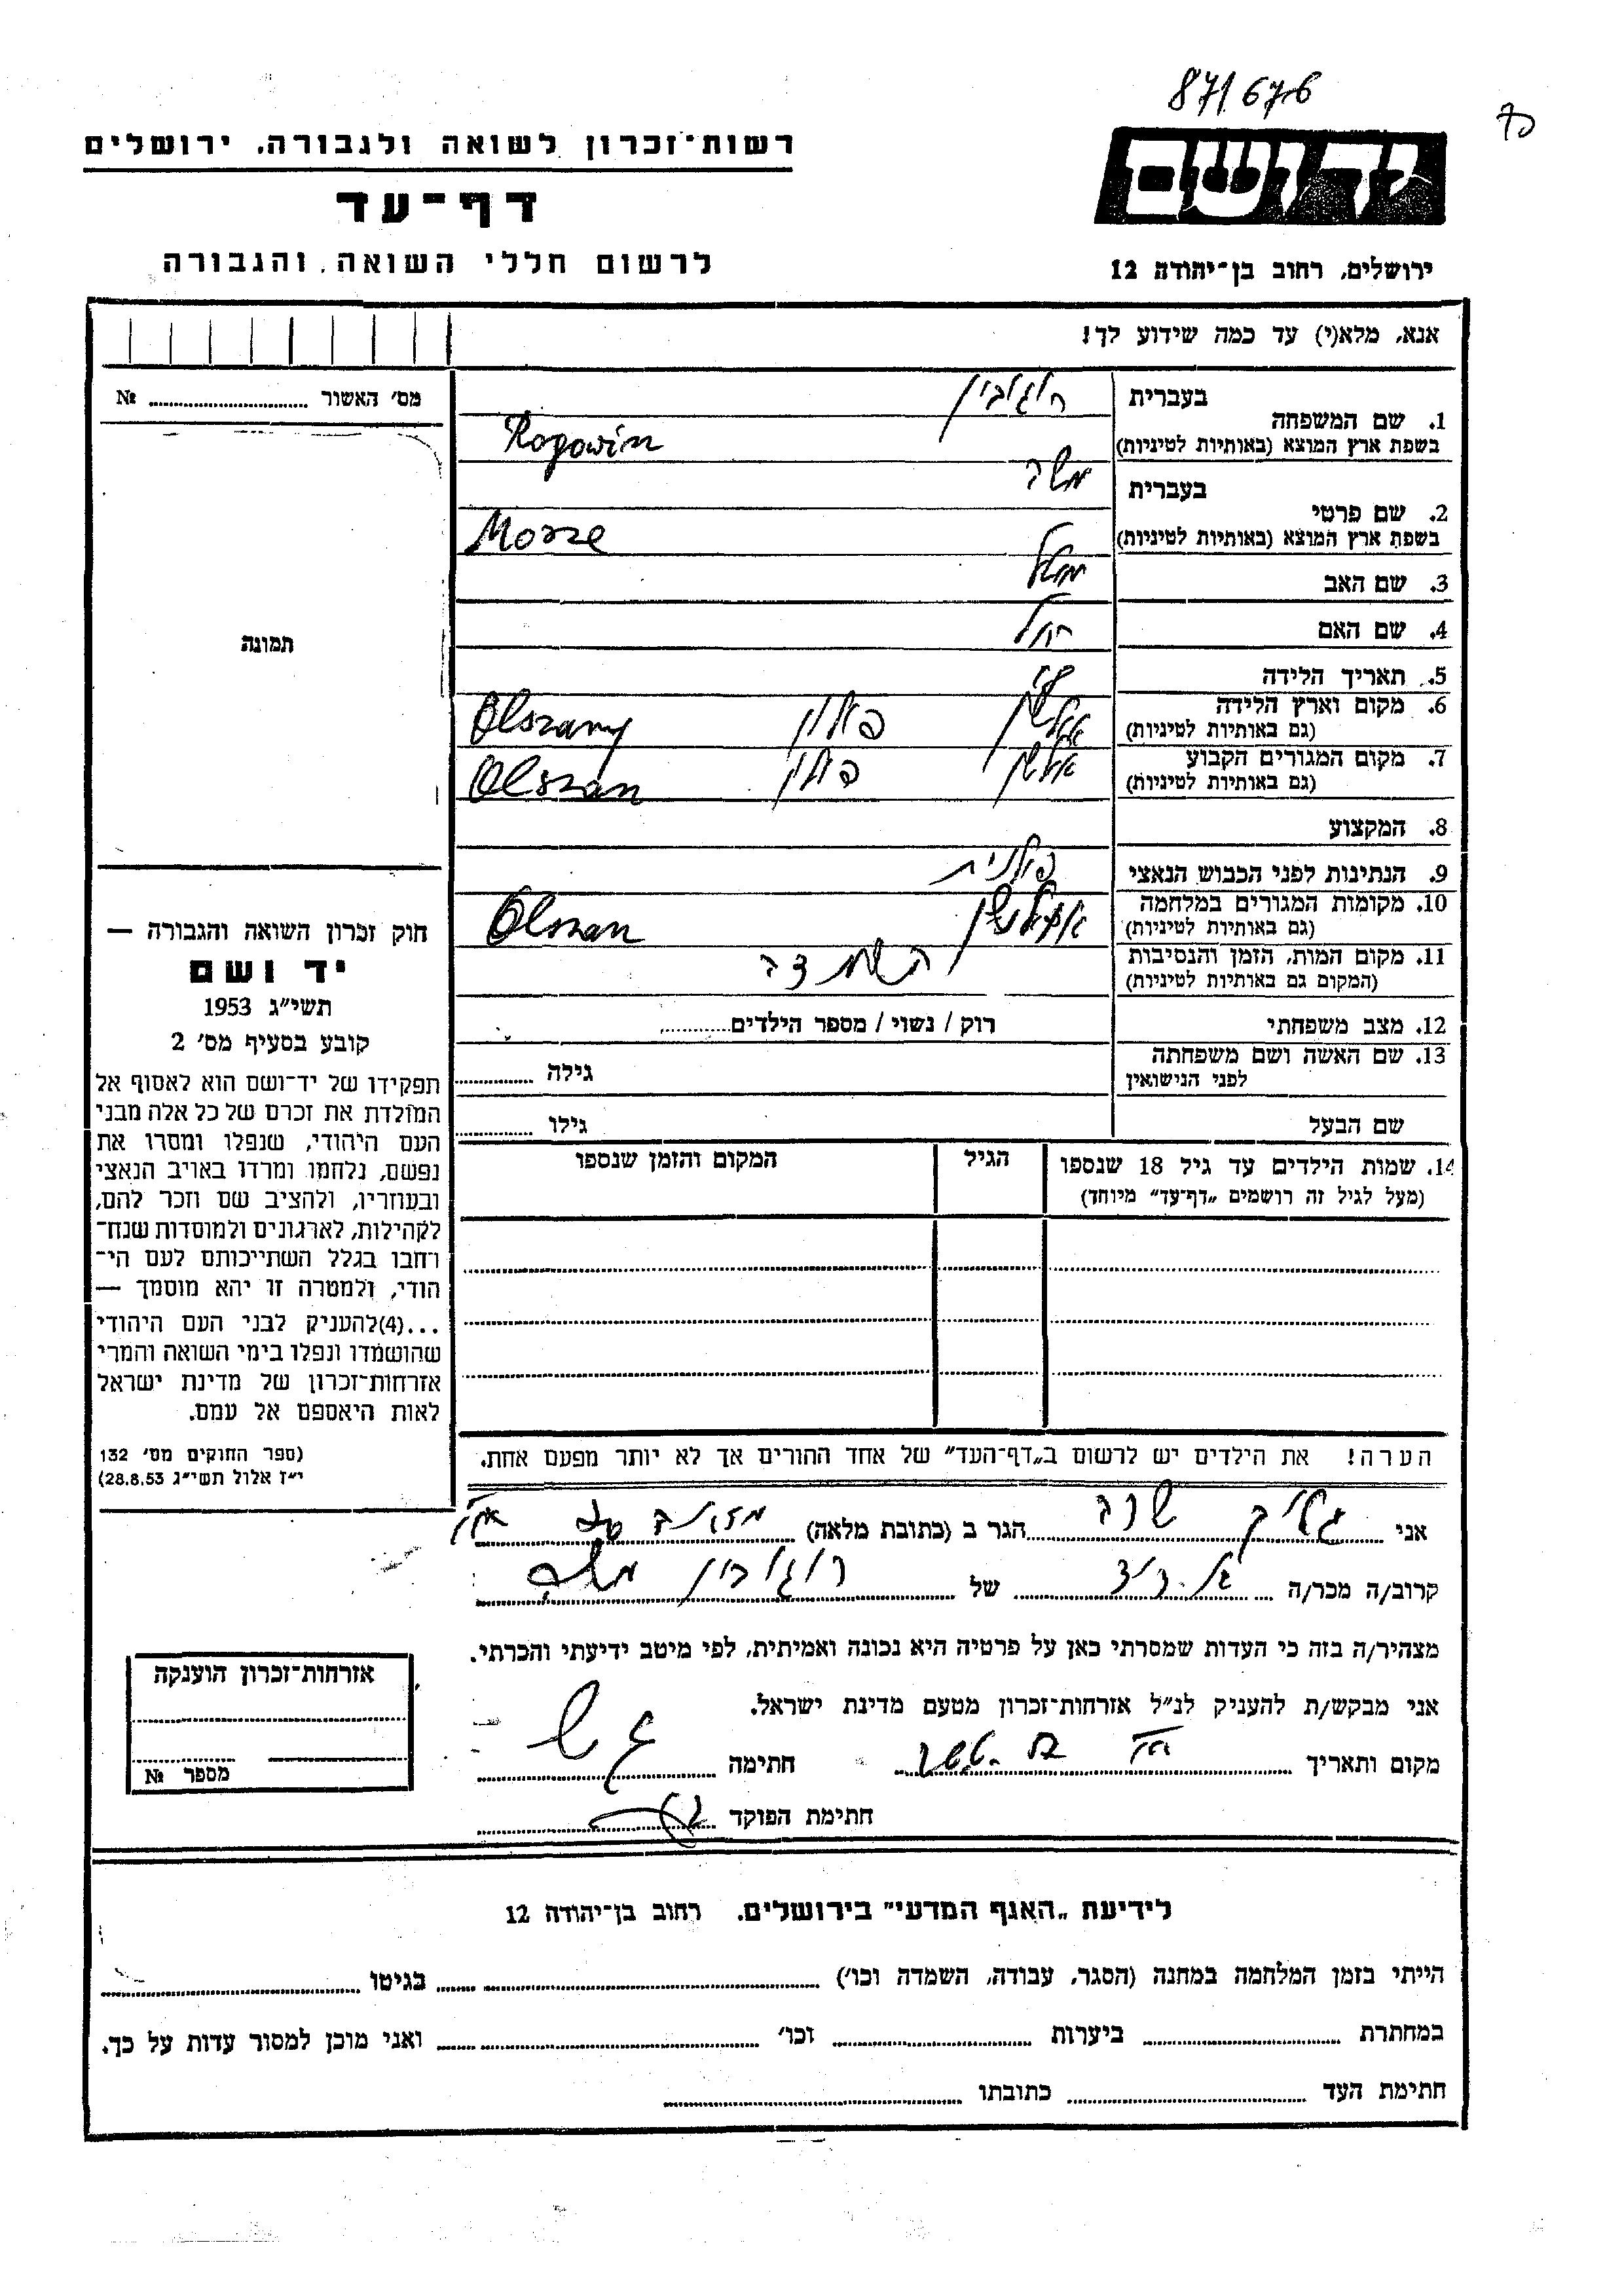 871676
רשות־זכרון לשואה ולגבורה. ירושלים
ידושם
דף־עד
לרשום חללי השואה והגבורה
ירושלים, רחוב בן־יהודה 12
אנא, מלא(י) עד כמה שידוע לך!
מס׳ האשור ........ №
תמונה
1. שם המשפחה
בעברית רוגובין
בשפת ארץ המוצא (באותיות לטיניות) Rogowin
2. שם פרטי
בעברית משה
בשפת ארץ המוצא (באותיות לטיניות)
3. שם האב
4. שם האם רחל
5. תאריך הלידה
6. מקום וארץ הלידה אלשן פולין Olszany
(גם באותיות לטיניות)
7. מקום המגורים הקבוע אלשן פולין Olszan
(גם באותיות לטיניות)
8. המקצוע
9. הנתינות לפני הכבוש הנאצי פולנית
10. מקומות המגורים במלחמה Olszan
(גם באותיות לטיניות)
11. מקום המות, הזמן והנסיבות
(המקום גם באותיות לטיניות)
12. מצב משפחתי רוק / נשוי / מספר הילדים........
13. שם האשה ושם משפחתה גילה ........
לפני הנישואין
שם הבעל גילו ........
14. שמות הילדים עד גיל 18 שנספו הגיל המקום והזמן שנספו
(מעל לגיל זה רושמים „דף־עד״ מיוחד)
הערה! את הילדים יש לרשום ב„דף־העד״ של אחד ההורים אך לא יותר מפעם אחת.
חוק זכרון השואה והגבורה —
יד ושם
תשי״ג 1953
קובע בסעיף מס׳ 2
תפקידו של יד־ושם הוא לאסוף אל
המולדת את זכרם של כל אלה מבני
העם היהודי, שנפלו ומסרו את
נפשם, נלחמו ומרדו באויב הנאצי
ובעוזריו, ולהציב שם וזכר להם,
לקהילות, לארגונים ולמוסדות שנח־
רחבו בגלל השתייכותם לעם הי־
הודי, ולמטרה זו יהא מוסמך —
...(4)להעניק לבני העם היהודי
שהושמדו ונפלו בימי השואה והמרי
אזרחות־זכרון של מדינת ישראל
לאות היאספם אל עמם.
(ספר החוקים מס׳ 132
י״ז אלול תשי״ג 28.8.53)
אני שרה הגר ב (כתובת מלאה)
קרוב/ה מכר/ה של רוגובין משה
מצהיר/ה בזה כי העדות שמסרתי כאן על פרטיה היא נכונה ואמיתית, לפי מיטב ידיעתי והכרתי.
אני מבקש/ת להעניק לנ״ל אזרחות־זכרון מטעם מדינת ישראל.
מקום ותאריך ........ חתימה ........
חתימת הפוקד ........
אזרחות־זכרון הוענקה
מספר №
לידיעת „האגף המדעי״ בירושלים. רחוב בן־יהודה 12
הייתי בזמן המלחמה במחנה (הסגר, עבודה, השמדה וכו׳) ........ בגיטו ........
במחתרת ........ ביערות ........ וכו׳ ........ ואני מוכן למסור עדות על כך.
חתימת העד ........ כתובתו ........